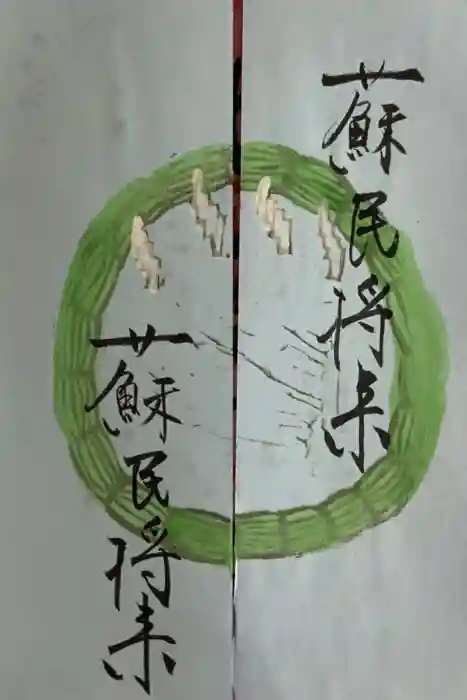 蘇民将来
蘇民将来